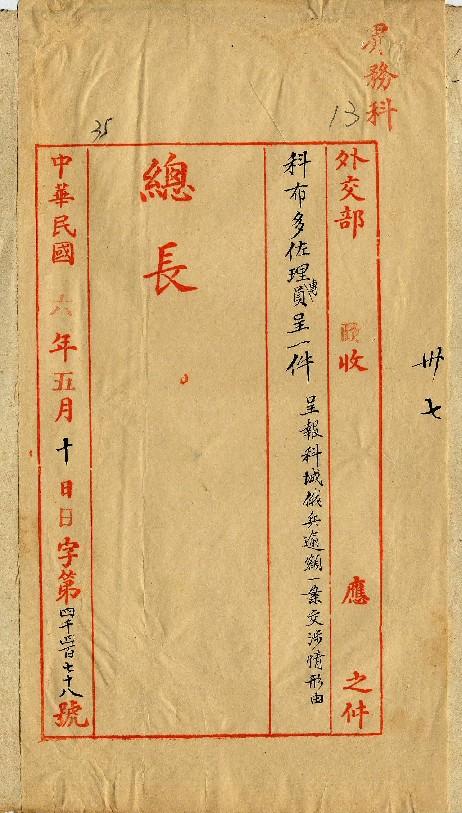 務科
13
35
卅七
外交部 收 應 之件
科布多佐理員呈一件 呈報科城俄兵逾額一案交涉情形由
總長
中華民國六年五月十日日字第四千三百七十八號